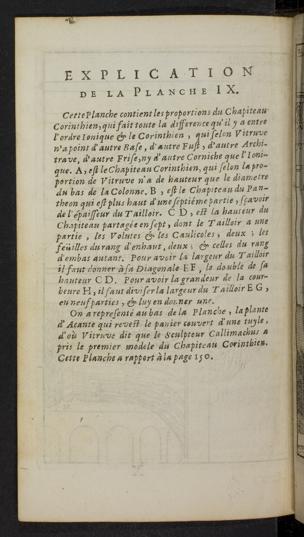 EXPLICATION
DE LA PLANCHE IX.
Cette Planche contient les proportions du Chapiteau
Corinthien, qui fait toute la difference qu'il y a entre
l'ordre Ionique & le Corinthien, qui selon Vitruve
n'a point d'autre Base, d'autre Fust, d'autre Archi-
trave, d'autre Frise, ny d'autre Corniche que l'Ioni-
que. A, est le Chapiteau Corinthien, qui selon la pro-
portion de Vitruve n'a de hauteur que le diametre
du bas de la Colonne. B, est le Chapiteau du Pan-
theon qui est plus haut d'une septiéme partie, sçavoir
de l'épaisseur du Tailloir. CD, est la hauteur du
Chapiteau partagée en sept, dont le Tailloir a une
partie, les Volutes & les Caulicoles, deux; les
feüilles du rang d'enhaut, deux; & celles du rang
d'embas autant. Pour avoir la largeur du Tailloir
il faut donner à sa Diagonale EF, le double de sa
hauteur CD. Pour avoir la grandeur de la cour-
beure H, il faut diviser la largeur du Tailloir EG,
en neuf parties, & luy en donner une.
On a representé au bas de la Planche, la plante
d'Acante qui revest le panier couvert d'une tuyle,
d'où Vitruve dit que le Sculpteur Callimachus a
pris le premier modele du Chapiteau Corinthien.
Cette Planche a rapport à la page 150.